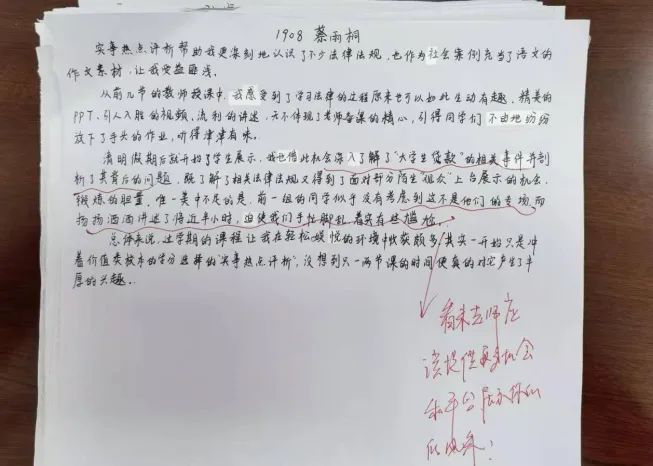 1908 蔡雨桐
实事热点评析帮助我更深刻地认识了不少法律法规，也作为社会案例充当了语文的
作文素材，让我受益匪浅。
从前几节的教师授课中，我感受到了学习法律的过程原来也可以如此生动有趣，精美的
PPT、引人入胜的视频、流利的讲述，无不体现了老师备课的精心，引得同学们不由地纷纷
放下了手头的作业，听得津津有味。
清明假期后就开始了学生展示，我也借此机会深入了解了"大学生贷款"的相关事件并剖
析了其背后的问题，既了解了相关法律法规又得到了面对部分陌生"观众"上台展示的机会，
锻炼的胆量，唯一美中不足的是，前一组的同学似乎没有考虑到这不是他们的专场，而
扬扬洒洒讲述了将近半小时，迫使我们手忙脚乱着实有些尴尬。
总评来说，这学期的课程让我在轻松娱悦的环境中收获颇多，其实一开始只是冲
着价值类校本的学分选择的"实事热点评析"，没想到只一两节课的时间便真的对它产生了丰
厚的兴趣。
看来老师应
该提供更多机会
和平台展示你们
的风采！